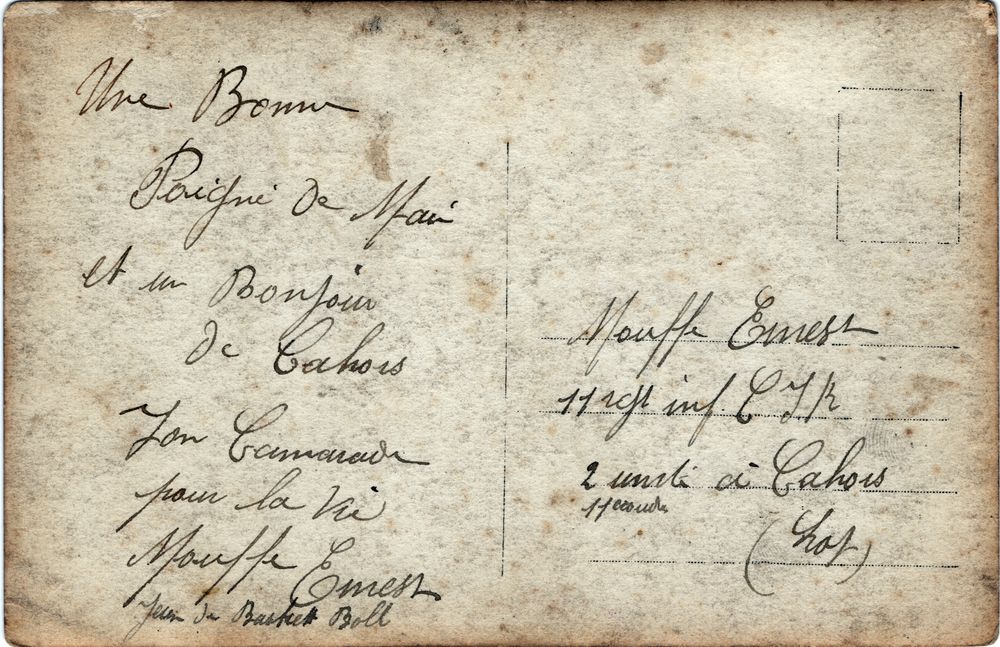 Une Bonne
Poigné de Main
et un Bonjour
de Cahors
Ton Camarade
pour la Vie
Mouffe Ernest
de Basket Boll
Mouffe Ernest
11 regt inf. C I R
2 unité à Cahors
(Lot)